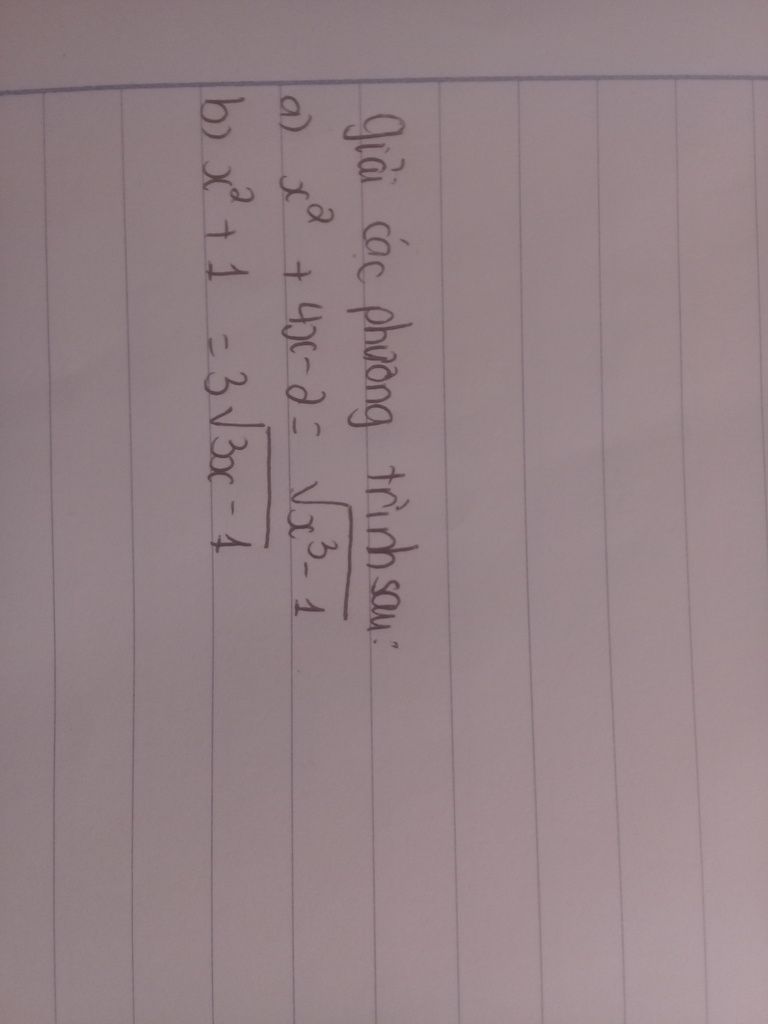 Giải các phương trình sau:
a) x² + 4x - 2 = √(x³ - 1)
b) x² + 1 = 3√(3x - 1)